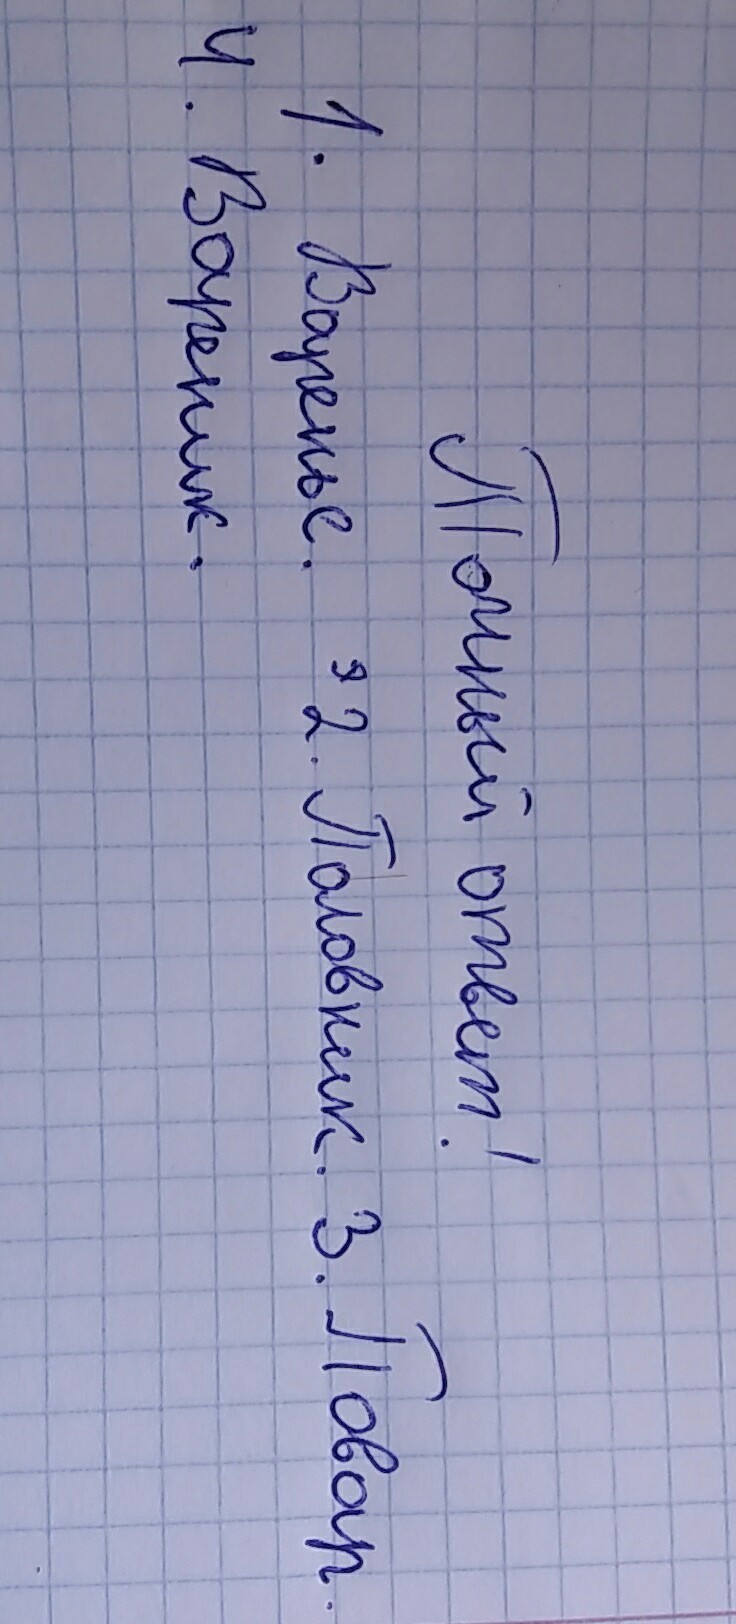 Полный ответ!
1. Варенье. 2. Половник. 3. Повар.
4. Вареник.